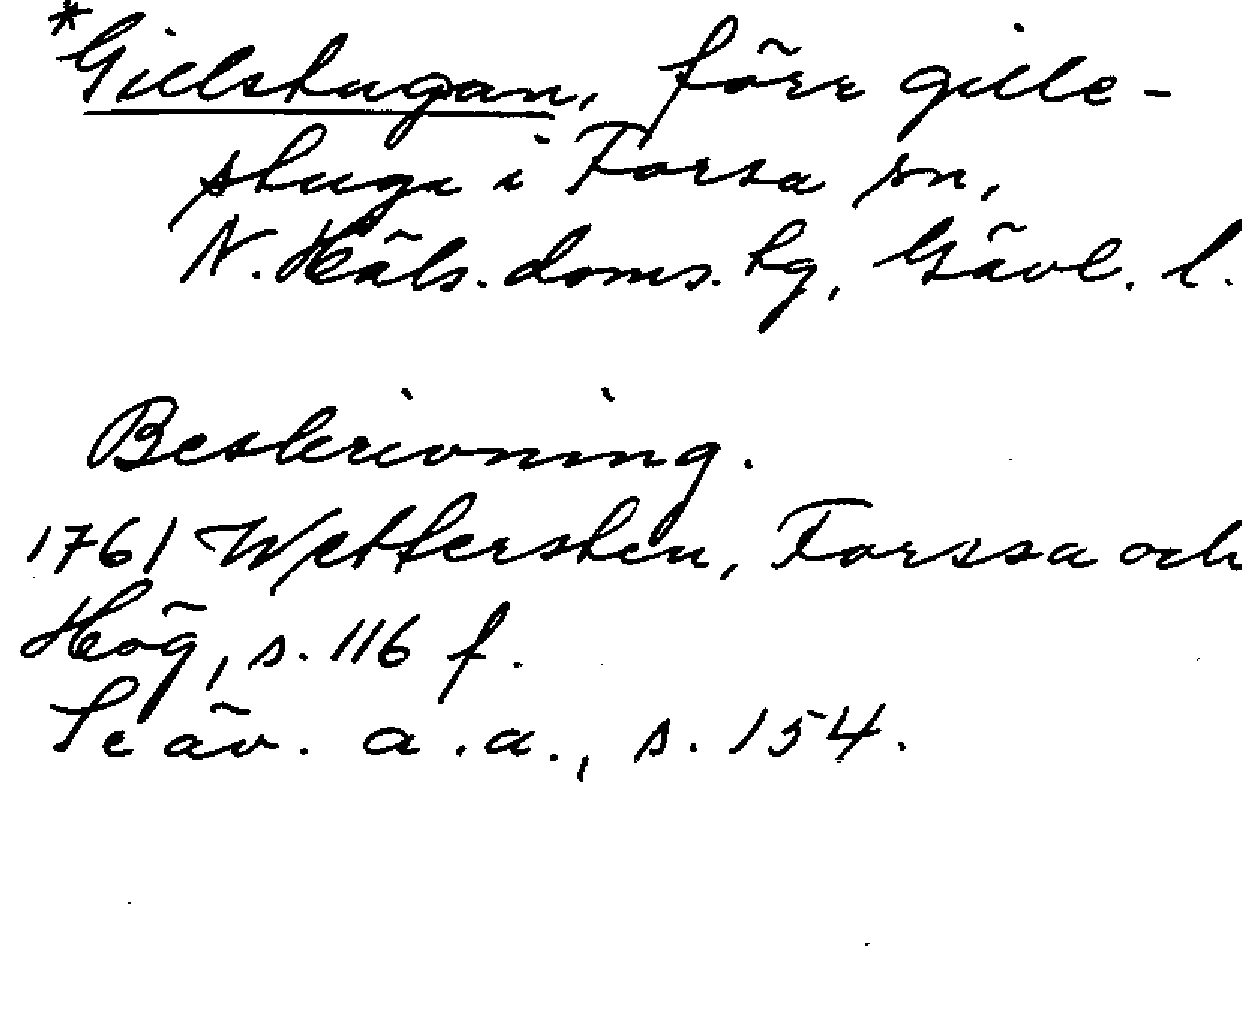 *Gillstugan, förr gille-
stuga i Forsa sn,
N. Häls. doms. tg, Gävl. l.
Beskrivning.
1761 Wettersten, Forssa och
Hög, s. 116 f.
Se äv. a.a., s. 154.